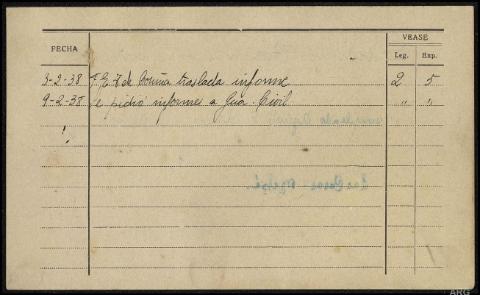 VEASE
FECHA Leg. Exp.
3-2-38 F.E.T de Coruña traslada informe 2 5
9-2-38 se pidio informes a Gua Civil " "
ARG